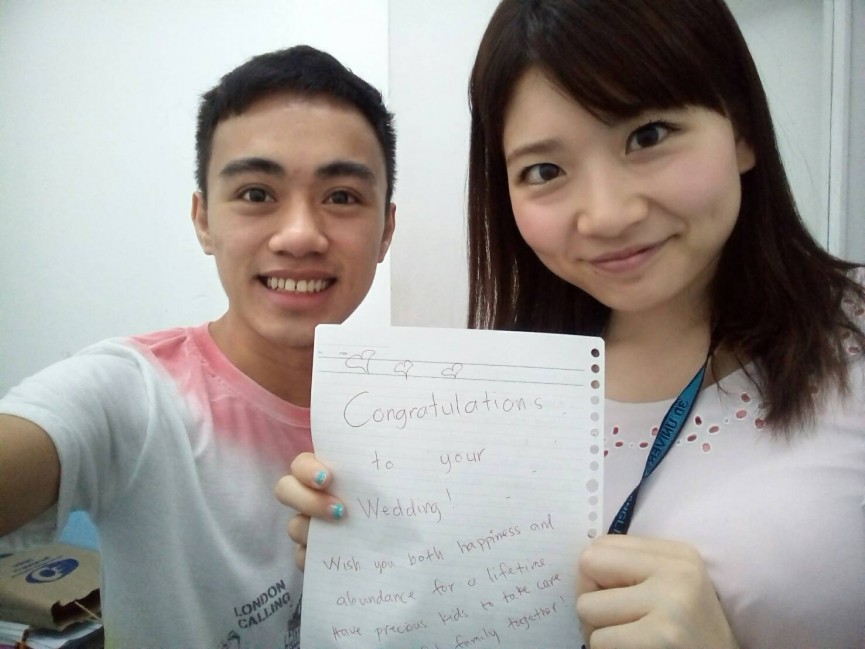 Congratulations
to your
Wedding!
Wish you both happiness and
abundance for a lifetime
Have precious kids to take care
family together!
LONDON
CALLING